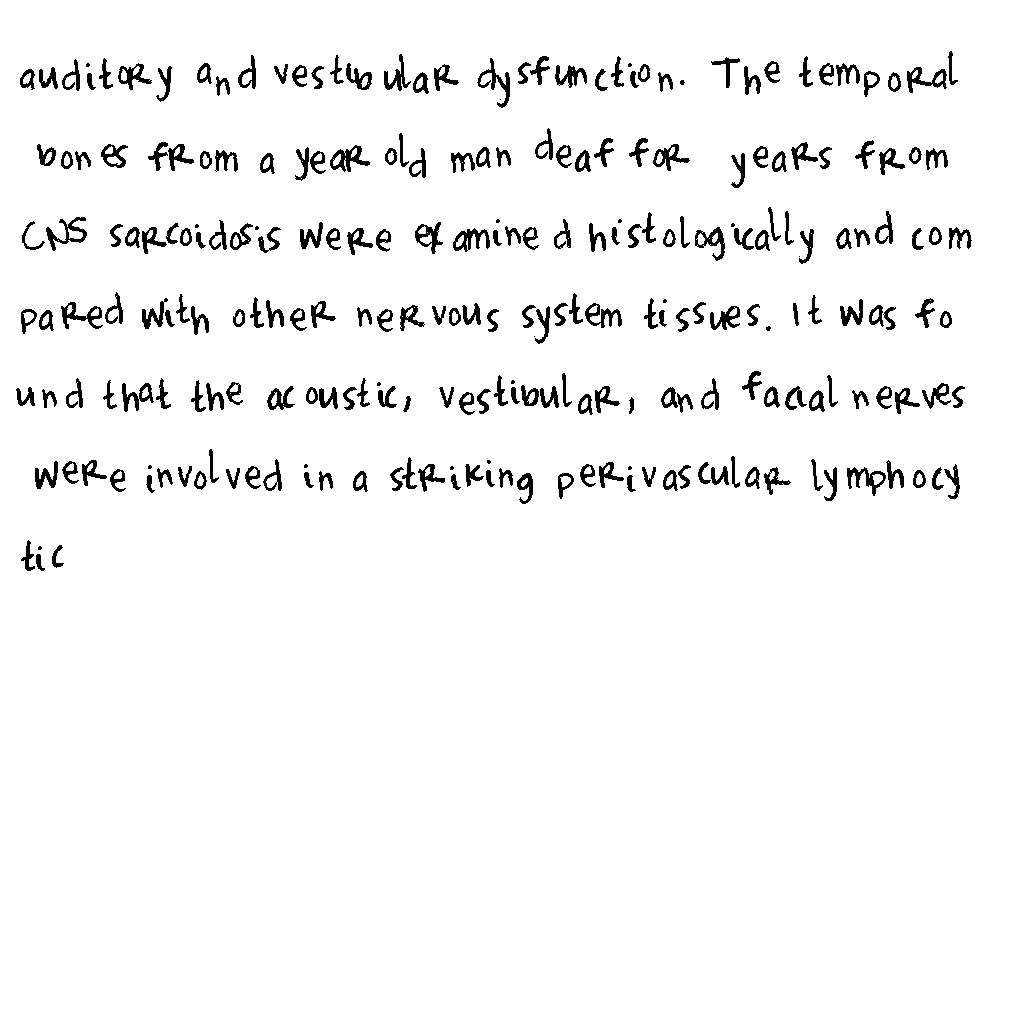 auditory and vestibular dysfunction. The temporal
bones from a year old man deaf for years from
CNS sarcoidosis were examined histologically and com
pared with other nervous system tissues. It was fo
und that the acoustic, vestibular, and facial nerves
were involved in a striking perivascular lymphocy
tic